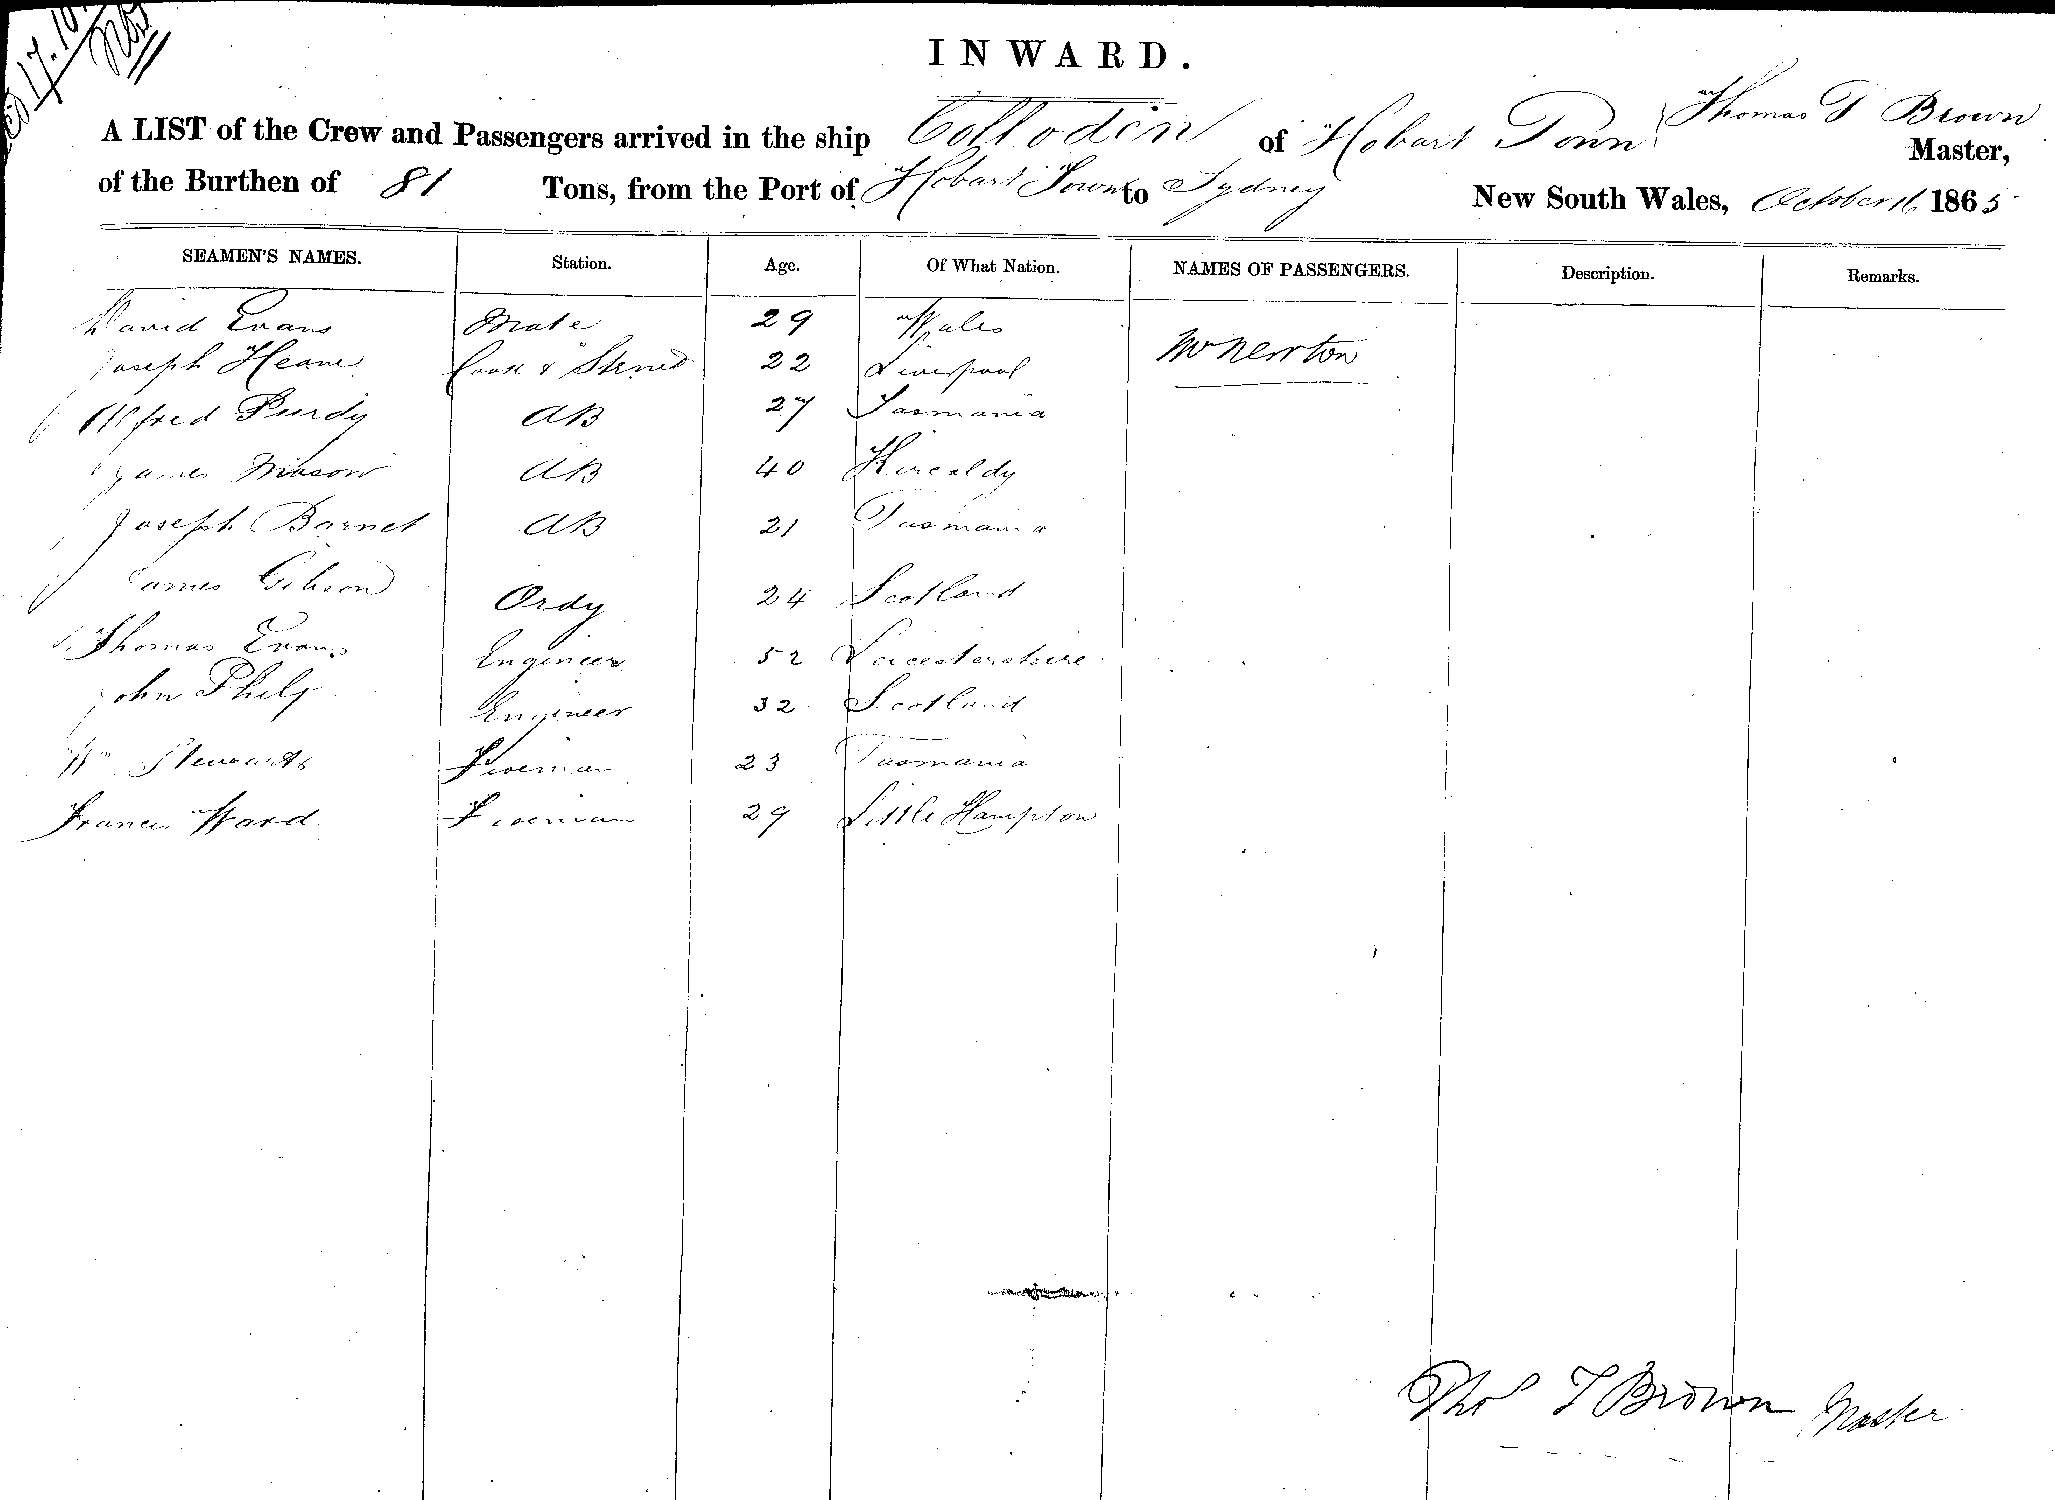 17.10.
INWARD.
A LIST of the Crew and Passengers arrived in the ship Colloden of Hobart Town Thomas T Brown Master,
of the Burthen of 81 Tons, from the Port of Hobart Town to Sydney New South Wales, October 16 1865
SEAMEN'S NAMES. Station. Age. Of What Nation. NAMES OF PASSENGERS. Description. Remarks.
David Evans Mate 29 Wales
Mr Newton
Joseph Heane Cook & Steward 22 Liverpool
Alfred Purdy AB 27 Tasmania
James AB 40 Kircaldy
Joseph Barnet AB 21 Tasmania
James Gibson Ordy 24 Scotland
Thomas Evans Engineer 52 Leicestershire
John Phelp Engineer 32 Scotland
Wm Stewart Fireman 23 Tasmania
Francis Ward Fireman 29 Little Hampton
Thos T Brown Master